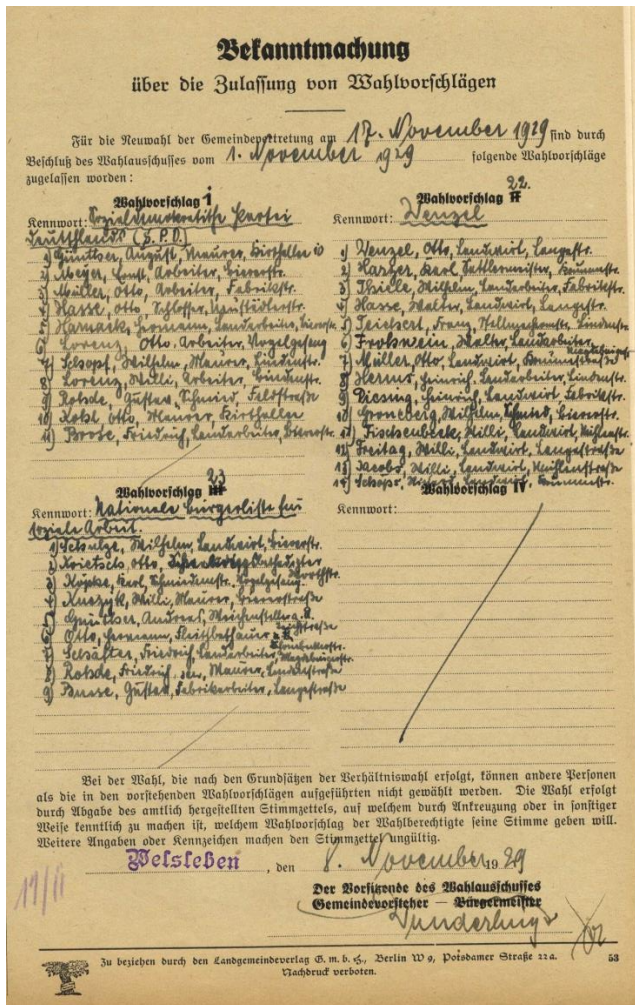 Bekanntmachung
über die Zulassung von Wahlvorschlägen
Für die Neuwahl der Gemeindevertretung am 17. November 1929 sind durch
Beschluß des Wahlausschusses vom 1. November 1929 folgende Wahlvorschläge
zugelassen worden:
Wahlvorschlag 1
Kennwort: Sozialdemokratische Partei
Deutschlands (S.P.D.)
1) Günther, August, Maurer, Kirthaller
2) Meyer, Ernst, Arbeiter, Biererstr.
3) Müller, Otto, Arbeiter, Fabrikstr.
4) Hasse, Otto, Schlosser, Neustädterstr.
5) Harnack, Hermann, Landarbeiter, Biererstr.
6) Lorenz, Otto, Arbeiter, Vogelgesang
7) Schopf, Wilhelm, Maurer, Lindenstr.
8) Lorenz, Willi, Arbeiter, Lindenstr.
9) Rohde, Gustav, Schmied, Feldstraße
10) Otto, Maurer,
11) Brose, Friedrich, Landarbeiter, Biererstr.
Wahlvorschlag 22.
Kennwort: Wenzel
1) Wenzel, Otto, Landwirt, Langestr.
2) Karl, Sattlermeister,
3) Thiele, Wilhelm, Landarbeiter, Fabrikstr.
4) Hasse, Walter, Landwirt, Langestr.
5) Teichert, Franz, Lindenstr.
6) Frohwein, Walter, Landarbeiter,
7) Müller, Otto, Landwirt,
8) Herms, Heinrich, Landarbeiter, Lindenstr.
9) Diesing, Heinrich, Landwirt, Fabrikstr.
10) Groneberg, Wilhelm, Schmied, Biererstr.
11) Fischenbeck, Willi, Landwirt, Mühlenstr.
12) Freitag, Willi, Landwirt, Langestraße
13) Jacobs, Willi, Landwirt, Mühlenstraße
14) Landwirt,
Wahlvorschlag IV
Kennwort:
Wahlvorschlag 23
Kennwort: Nationale Bürgerliste für
soziale Arbeit.
1) Schulze, Wilhelm, Landwirt, Biererstr.
2) Otto,
3) Köpke, Karl, Schmiedemstr. Vogelgesang
4) Willi, Maurer, Biererstraße
5) Günther, Andreas, Weichensteller a. D.
6) Otto, Hermann,
7) Schäffer, Friedrich, Landarbeiter,
8) Rohde, Friedrich, sen., Maurer, Lindenstraße
9) Busse, Gustav, Fabrikarbeiter, Langestraße
Bei der Wahl, die nach den Grundsätzen der Verhältniswahl erfolgt, können andere Personen
als die in den vorstehenden Wahlvorschlägen aufgeführten nicht gewählt werden. Die Wahl erfolgt
durch Abgabe des amtlich hergestellten Stimmzettels, auf welchem durch Ankreuzung oder in sonstiger
Weise kenntlich zu machen ist, welchem Wahlvorschlag der Wahlberechtigte seine Stimme geben will.
Weitere Angaben oder Kennzeichen machen den Stimmzettel ungültig.
Welsleben, den 8. November 1929
Der Vorsitzende des Wahlausschusses
Gemeindevorsteher — Bürgermeister
17/11
Zu beziehen durch den Landgemeindeverlag G. m. b. H., Berlin W 9, Potsdamer Straße 22a. 53
Nachdruck verboten.